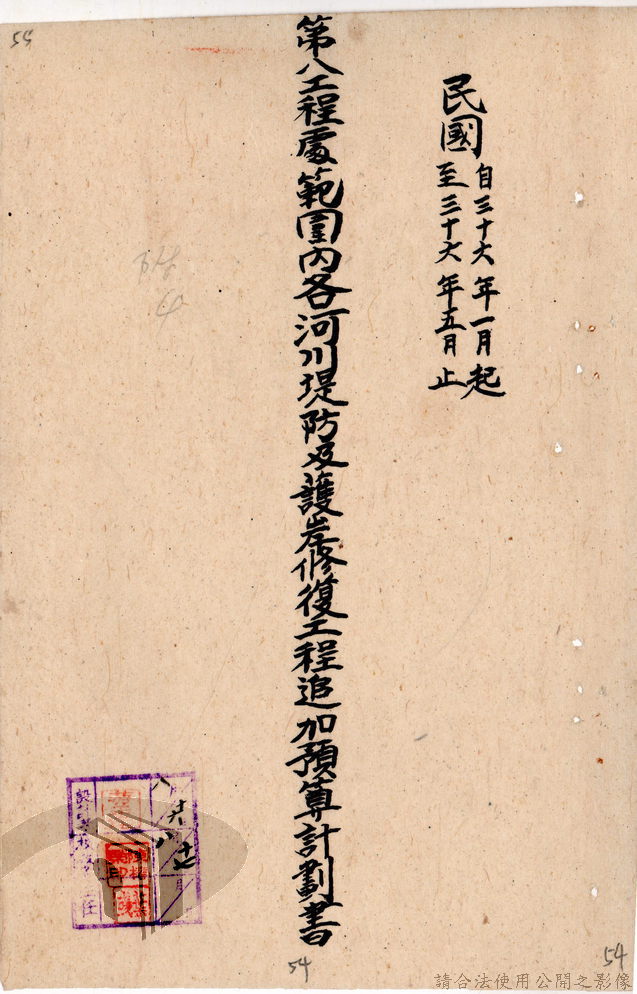 民國
自三十六年一月起
至三十六年五月止
第八工程處範圍內各河川堤防及護岸修復工程追加預算計劃書
55
54
54
請合法使用公開之影像